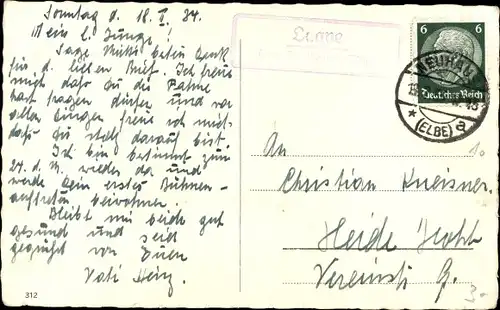 Sonntag d. 18. II. 34.
Mein l. Junge!
Sage Mutti besten Dank
für d. lieben Brief. Ich freue
mich dass du die Fahne
hast tragen dürfen und vor
allen Dingen freue ich mich
dass du stolz darauf bist.
Ich bin bestimmt zum
24. d. M. wieder da und
werde dein erstes Bühnen-
auftreten bewohnen.
Bleibt mir beide gut
gesund und seid
gegrüßt von Euren
Vati Heinz.
312
6 6
Deutsches Reich
NEUHAUS
(ELBE) a
An
Christian Kneisner
Heide Holst
Vereinsstr.